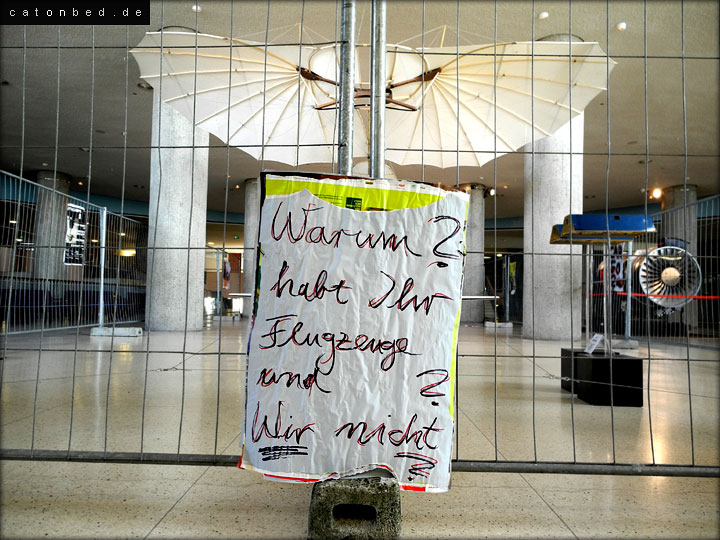 catonbed.de
Warum ?
habt Ihr
Flugzeuge
und ?
Wir nicht